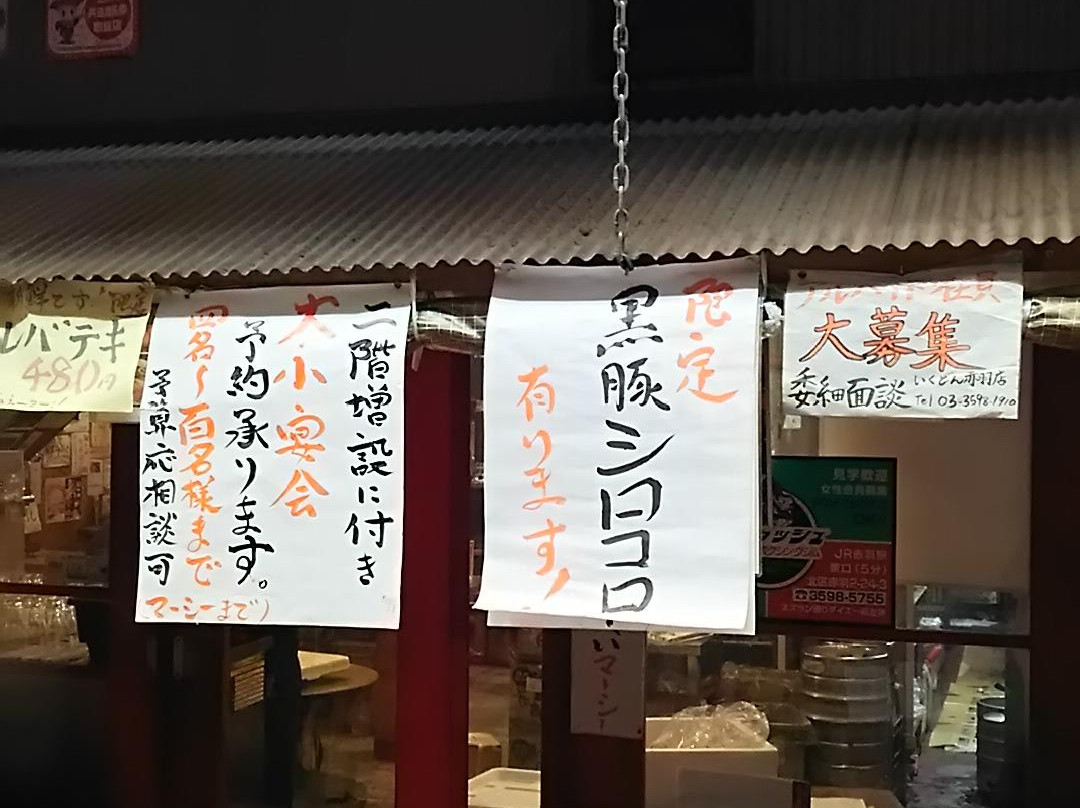 限定
黒豚シロコロ
有ります!
二階増設に付き
大小宴会
予約承ります。
四名〜百名様まで
予算応相談可
(マーシーまで)
レバテキ
480円
大募集
委細面談
いくどん赤羽店
Tel 03-3598-1910
見学歓迎
女性会員募集
JR赤羽駅
東口(5分)
北区赤羽2-24-3
☎3598-5755
マーシー